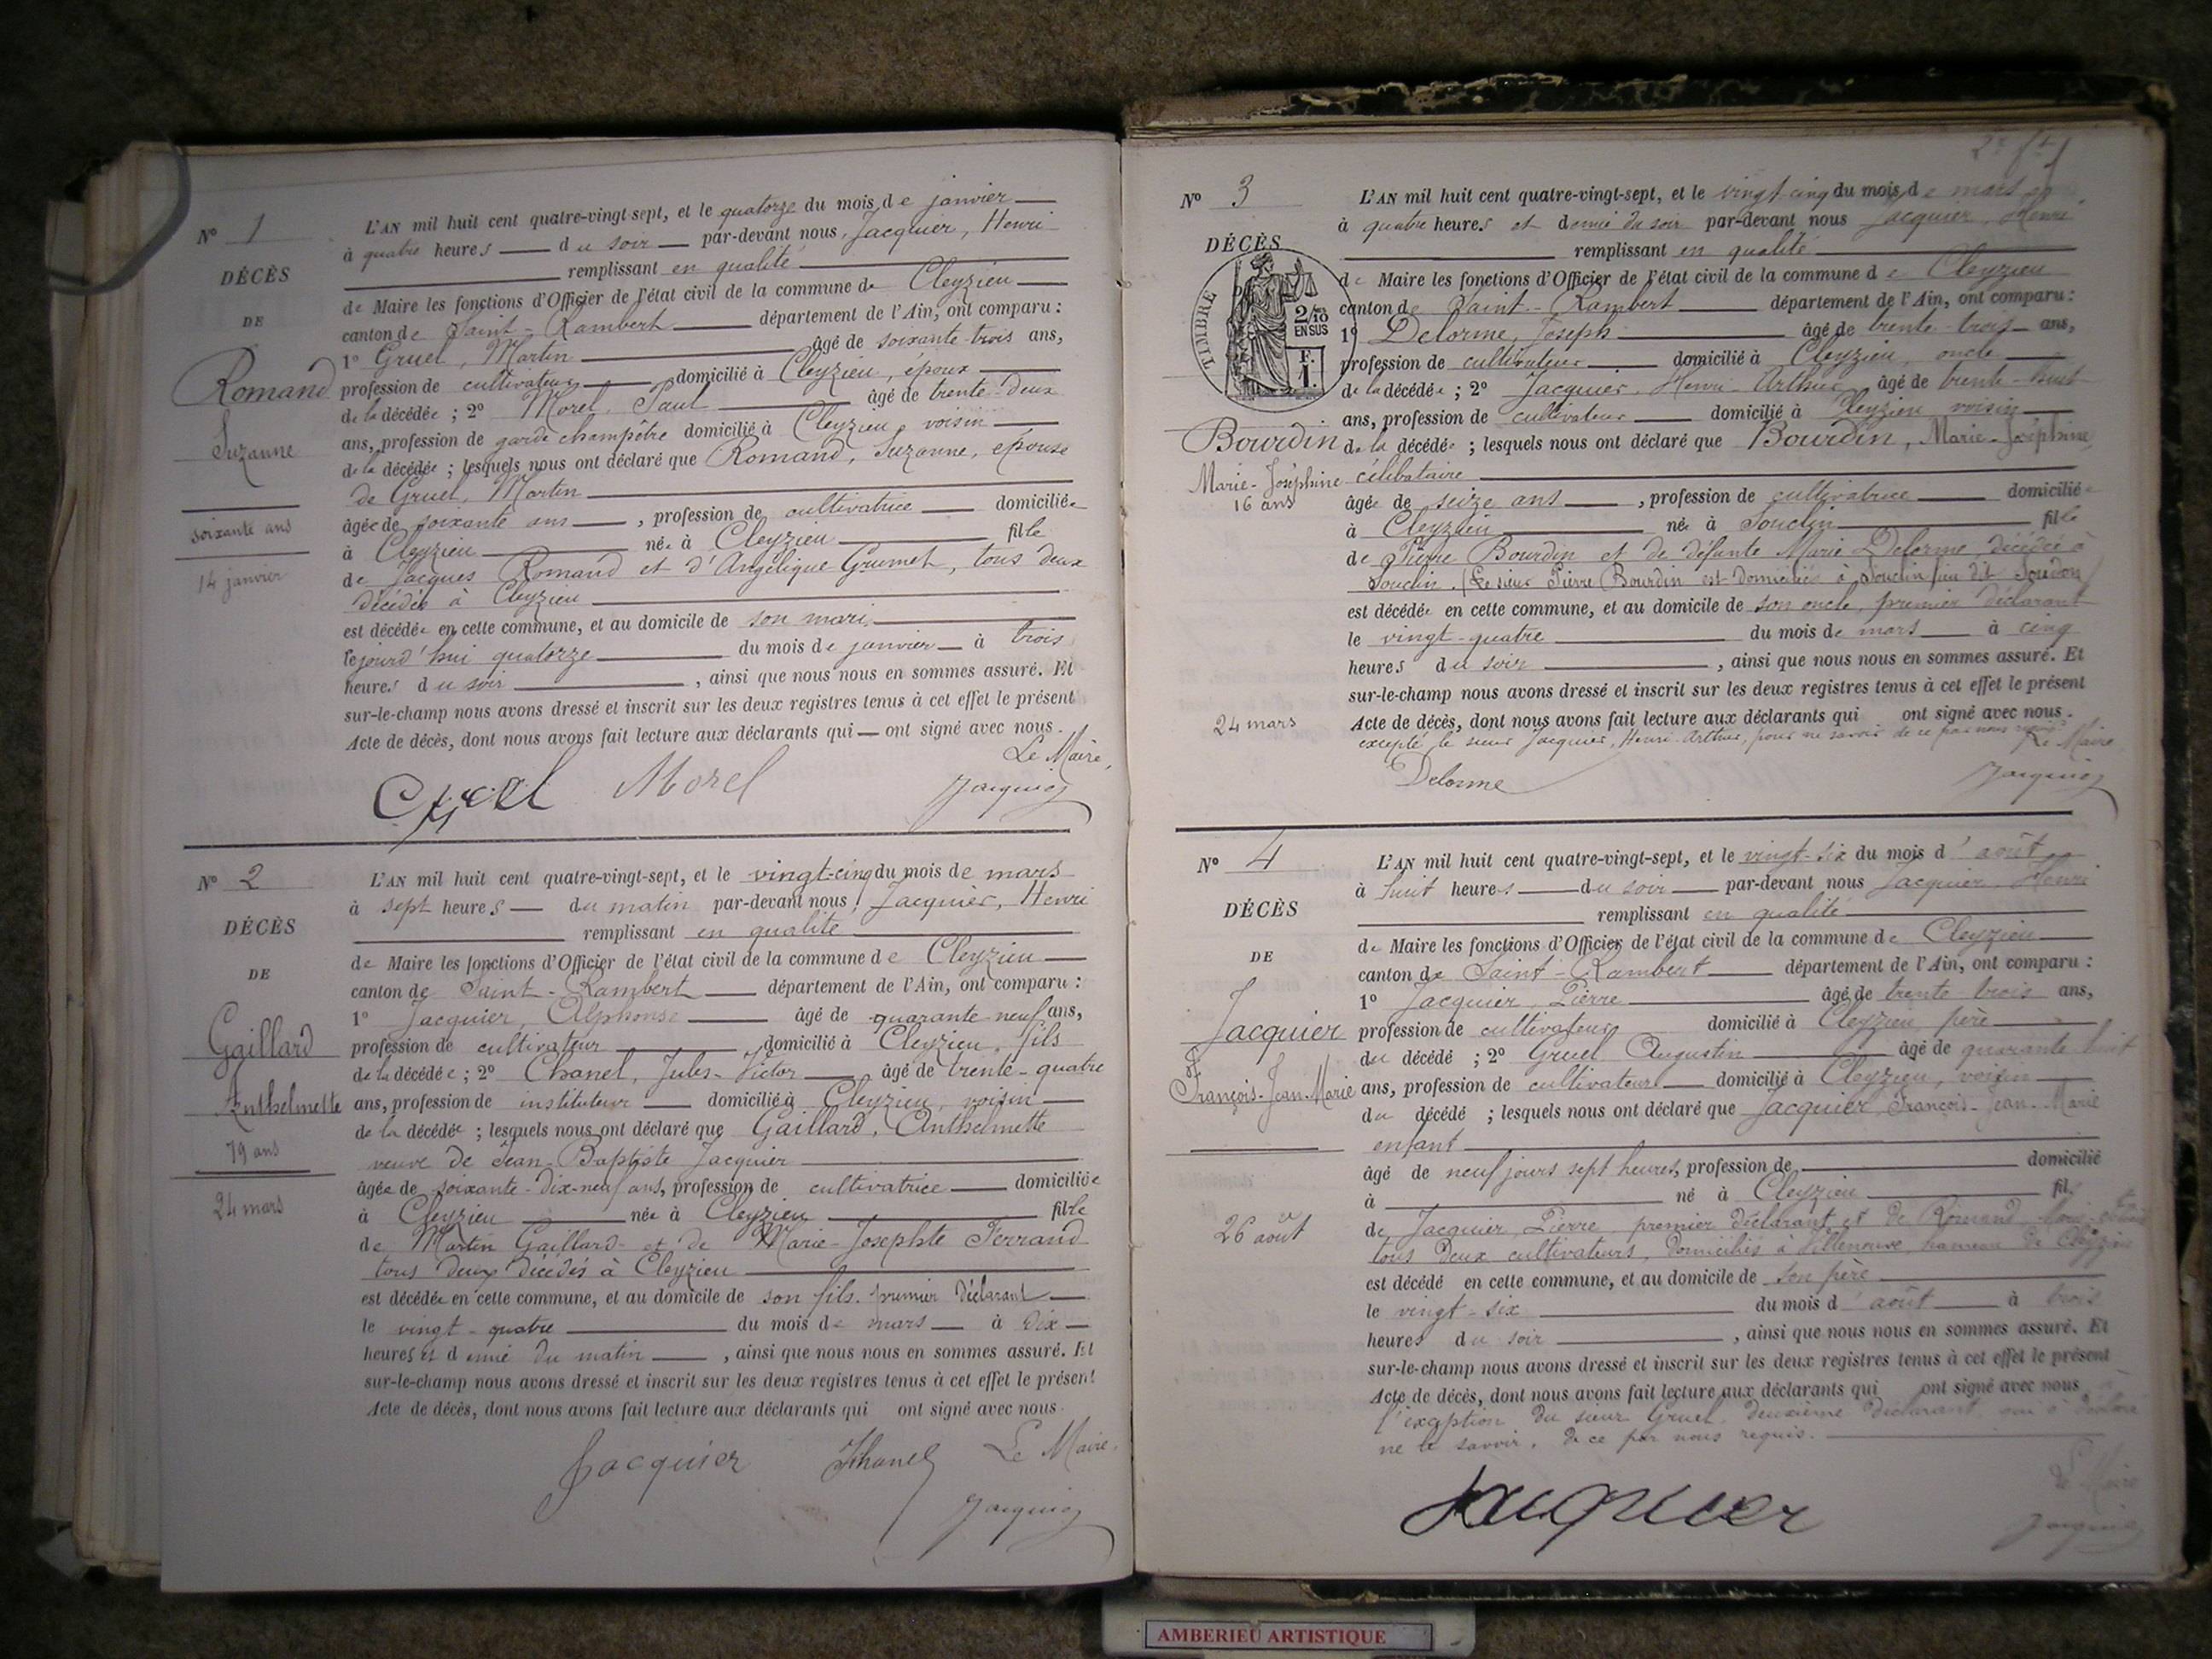 Nº 1
DÉCÈS
DE
Romand
Suzanne
soixante ans
14 janvier
L'AN mil huit cent quatre-vingt-sept, et le quatorze du mois de janvier
à quatre heures du soir par-devant nous, Jacquier, Henri
remplissant en qualité
de Maire les fonctions d'Officier de l'état civil de la commune de Cleyzieu
canton de Saint-Rambert département de l'Ain, ont comparu :
1º Gruel, Martin âgé de soixante-trois ans,
profession de cultivateur domicilié à Cleyzieu, époux
de la décédée ; 2º Morel, Paul âgé de trente-deux
ans, profession de garde champêtre domicilié à Cleyzieu, voisin
de la décédée ; lesquels nous ont déclaré que Romand, Suzanne, épouse
de Gruel, Martin
âgée de soixante ans, profession de cultivatrice domiciliée
à Cleyzieu née à Cleyzieu fille
de Jacques Romand et d'Angélique Grumet, tous deux
décédés à Cleyzieu
est décédée en cette commune, et au domicile de son mari,
lejourd'hui quatorze du mois de janvier à trois
heures du soir, ainsi que nous nous en sommes assuré. Et
sur-le-champ nous avons dressé et inscrit sur les deux registres tenus à cet effet le présent
Acte de décès, dont nous avons fait lecture aux déclarants qui ont signé avec nous.
Le Maire,
Morel Jacquier
Nº 2
DÉCÈS
DE
Gaillard
Anthelmette
79 ans
24 mars
L'AN mil huit cent quatre-vingt-sept, et le vingt-cinq du mois de mars
à sept heures du matin par-devant nous, Jacquier, Henri
remplissant en qualité
de Maire les fonctions d'Officier de l'état civil de la commune de Cleyzieu
canton de Saint-Rambert département de l'Ain, ont comparu :
1º Jacquier, Alphonse âgé de quarante-neuf ans,
profession de cultivateur domicilié à Cleyzieu, fils
de la décédée ; 2º Chanel, Jules-Victor âgé de trente-quatre
ans, profession de instituteur domicilié à Cleyzieu, voisin
de la décédée ; lesquels nous ont déclaré que Gaillard, Anthelmette
veuve de Jean-Baptiste Jacquier
âgée de soixante-dix-neuf ans, profession de cultivatrice domiciliée
à Cleyzieu née à Cleyzieu fille
de Martin Gaillard et de Marie-Josephte Ferrand
tous deux décédés à Cleyzieu
est décédée en cette commune, et au domicile de son fils, premier déclarant
le vingt-quatre du mois de mars à dix
heures et demie du matin, ainsi que nous nous en sommes assuré. Et
sur-le-champ nous avons dressé et inscrit sur les deux registres tenus à cet effet le présent
Acte de décès, dont nous avons fait lecture aux déclarants qui ont signé avec nous.
Jacquier Chanel Le Maire,
Jacquier
Nº 3
DÉCÈS
TIMBRE
2/10
EN SUS
F.
1.
Bourdin
Marie-Joséphine
16 ans
24 mars
L'AN mil huit cent quatre-vingt-sept, et le vingt-cinq du mois de mars
à quatre heures et demie du soir par-devant nous Jacquier, Henri
remplissant en qualité
de Maire les fonctions d'Officier de l'état civil de la commune de Cleyzieu
canton de Saint-Rambert département de l'Ain, ont comparu :
1º Delorme, Joseph âgé de trente-trois ans,
profession de cultivateur domicilié à Cleyzieu, oncle
de la décédée ; 2º Jacquier, Henri-Arthur, âgé de trente-huit
ans, profession de cultivateur domicilié à Cleyzieu voisin
de la décédée ; lesquels nous ont déclaré que Bourdin, Marie-Joséphine
célibataire
âgée de seize ans, profession de cultivatrice domiciliée
à Cleyzieu née à Souclin fille
de Pierre Bourdin et de défunte Marie Delorme, décédée à
Souclin. (Le sieur Pierre Bourdin est domicilié à Souclin lieu dit Soudon)
est décédée en cette commune, et au domicile de son oncle, premier déclarant
le vingt-quatre du mois de mars à cinq
heures du soir, ainsi que nous nous en sommes assuré. Et
sur-le-champ nous avons dressé et inscrit sur les deux registres tenus à cet effet le présent
Acte de décès, dont nous avons fait lecture aux déclarants qui ont signé avec nous.
excepté le sieur Jacquier, Henri-Arthur, pour ne savoir de ce par nous requis
Le Maire
Delorme Jacquier
Nº 4
DÉCÈS
DE
Jacquier
François-Jean-Marie
26 août
L'AN mil huit cent quatre-vingt-sept, et le vingt-six du mois d'août
à huit heures du soir par-devant nous Jacquier, Henri
remplissant en qualité
de Maire les fonctions d'Officier de l'état civil de la commune de Cleyzieu
canton de Saint-Rambert département de l'Ain, ont comparu :
1º Jacquier, Pierre âgé de trente-trois ans,
profession de cultivateur domicilié à Cleyzieu, père
du décédé ; 2º Gruel Augustin âgé de quarante-huit
ans, profession de cultivateur domicilié à Cleyzieu, voisin
du décédé ; lesquels nous ont déclaré que Jacquier, François-Jean-Marie
enfant
âgé de neuf jours sept heures, profession de domicilié
à né à Cleyzieu fils
de Jacquier, Pierre, premier déclarant et de Romand
tous deux cultivateurs, domiciliés à Villeneuve, hameau de Cleyzieu
est décédé en cette commune, et au domicile de son père
le vingt-six du mois d'août à trois
heures du soir, ainsi que nous nous en sommes assuré. Et
sur-le-champ nous avons dressé et inscrit sur les deux registres tenus à cet effet le présent
Acte de décès, dont nous avons fait lecture aux déclarants qui ont signé avec nous, à
l'exception du sieur Gruel, deuxième déclarant, qui a déclaré
ne le savoir, de ce par nous requis.
Le Maire
Jacquier Jacquier
AMBERIEU ARTISTIQUE